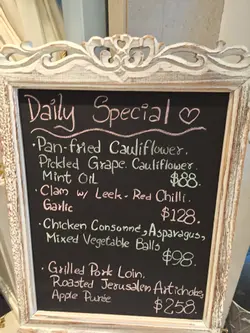 Daily Special ♡
· Pan-fried Cauliflower.
Pickled Grape. Cauliflower.
Mint Oil $88.
· Clam w/ Leek. Red Chilli.
Garlic $128.
· Chicken Consommé, Asparagus,
Mixed Vegetable Balls
$98.
· Grilled Pork Loin,
Roasted Jerusalem Artichokes,
Apple Purée $258.